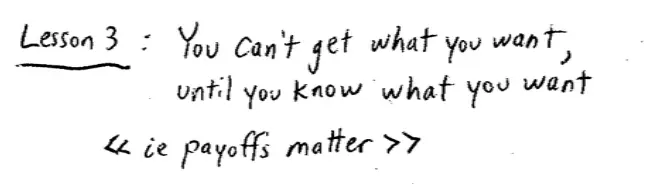 Lesson 3 : You can't get what you want,
until you know what you want
<< ie payoffs matter >>